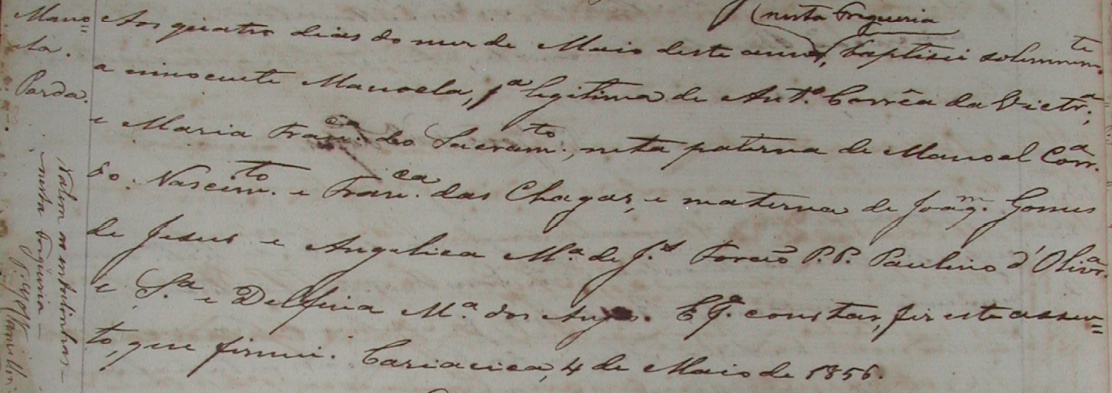 Mano=
ela.
Parda.
nesta Freguesia
Aos quatro dias do mez de Maio deste anno, baptisei solemnem.te
a innocente Manoela, f.a legitima de Ant.o Corrêa da Victr.a,
e Maria Fran.ca do Sacram.to, neta paterna de Manoel Corr.a
do Nascim.to e Fran.ca das Chagas, e materna de Joaq.m Gomes
de Jesus e Angelica M.a de J.s Forão P.P. Paulino d'Oliv.a
e S.a e Delfina M.a dos Anjos. E p.a constar, fiz este assen=
to, que firmei. Cariacica, 4 de Maio de 1856.
Valem as entrelinhas =
nesta Freguesia =